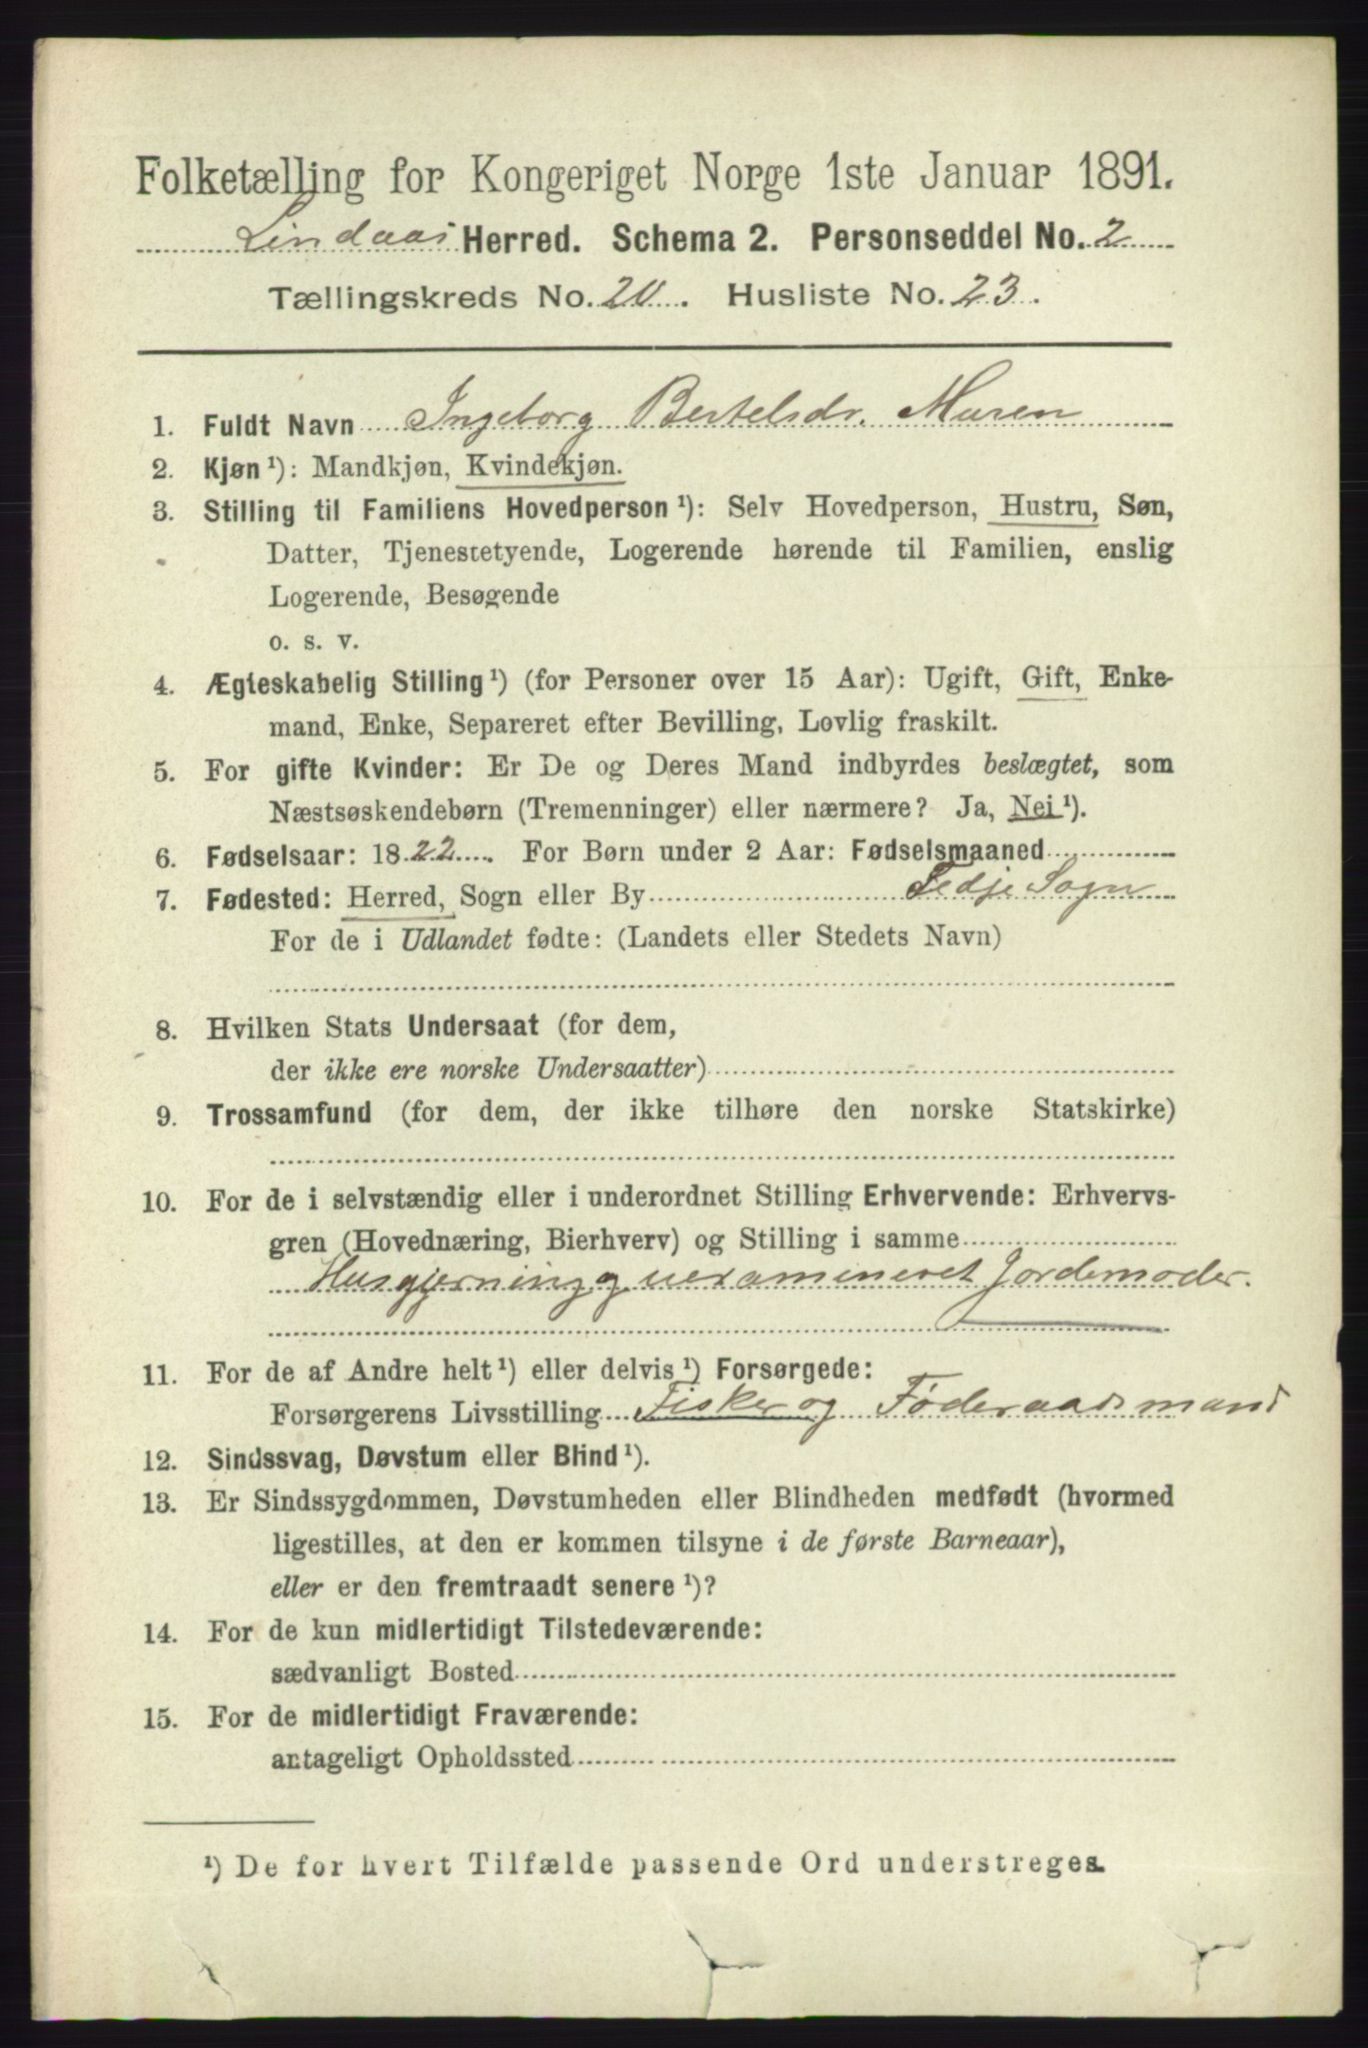 Folketælling for Kongeriget Norge 1ste Januar 1891.
Lindaas Herred. Schema 2. Personseddel No. 2
Tællingskreds No. 20. Husliste No. 23.
1. Fuldt Navn Ingeborg Bertelsdr. Muren
2. Kjøn ¹): Mandkjøn, Kvindekjøn.
3. Stilling til Familiens Hovedperson ¹): Selv Hovedperson, Hustru, Søn,
Datter, Tjenestetyende, Logerende hørende til Familien, enslig
Logerende, Besøgende
o. s. v.
4. Ægteskabelig Stilling ¹) (for Personer over 15 Aar): Ugift, Gift, Enke-
mand, Enke, Separeret efter Bevilling, Lovlig fraskilt.
5. For gifte Kvinder: Er De og Deres Mand indbyrdes beslægtet, som
Næstsøskendebørn (Tremenninger) eller nærmere? Ja, Nei ¹).
6. Fødselsaar: 1822. For Børn under 2 Aar: Fødselsmaaned
7. Fødested: Herred, Sogn eller By Fedje Sogn
For de i Udlandet fødte: (Landets eller Stedets Navn)
8. Hvilken Stats Undersaat (for dem,
der ikke ere norske Undersaatter)
9. Trossamfund (for dem, der ikke tilhøre den norske Statskirke)
10. For de i selvstændig eller i underordnet Stilling Erhvervende: Erhvervs-
gren (Hovednæring, Bierhverv) og Stilling i samme
Husgjerning og uexamineret Jordemoder.
11. For de af Andre helt ¹) eller delvis ¹) Forsørgede:
Forsørgerens Livsstilling Fisker og Føderaadsmand
12. Sindssvag, Døvstum eller Blind ¹).
13. Er Sindssygdommen, Døvstumheden eller Blindheden medfødt (hvormed
ligestilles, at den er kommen tilsyne i de første Barneaar),
eller er den fremtraadt senere ¹)?
14. For de kun midlertidigt Tilstedeværende:
sædvanligt Bosted
15. For de midlertidigt Fraværende:
antageligt Opholdssted
¹) De for hvert Tilfælde passende Ord understreges.